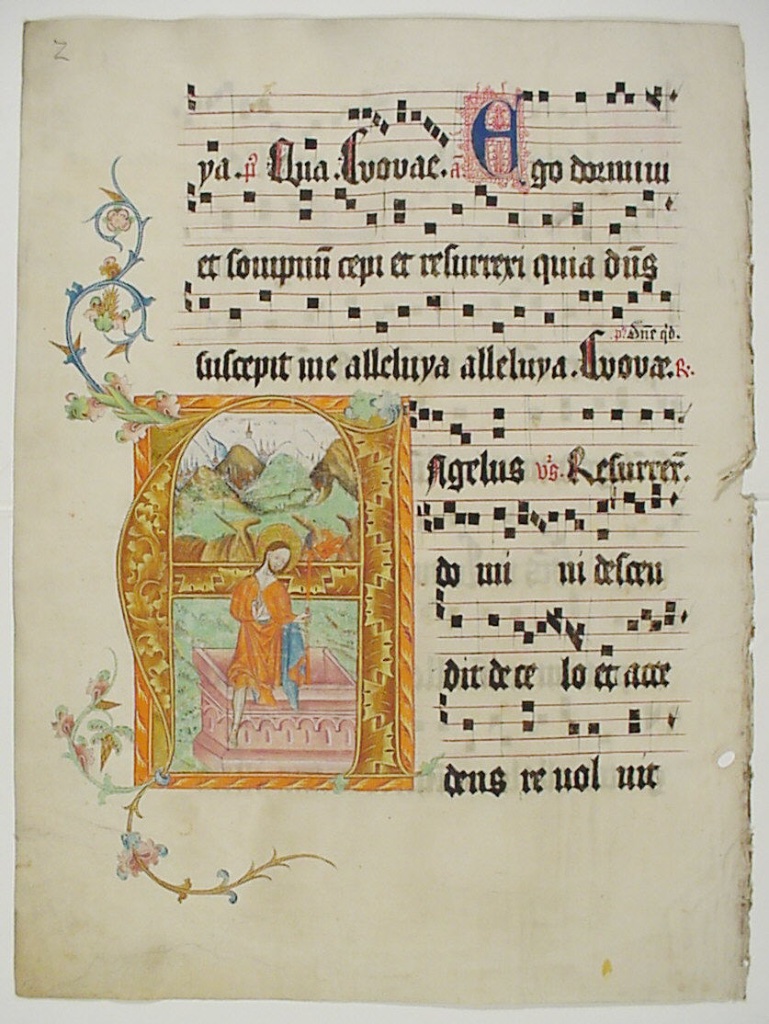 2
ya. ps̄ Qua. Evovae. a̅ Ego dormivi
et sompnū cepi et resurrexi quia dn̄s
ps̄ Dn̄e qd.
suscepit me alleluya alleluya. Evovae. R.
Agelus vs. Resurrex̄.
do mi ni descen
dit de ce lo et acce
dens re vol vit